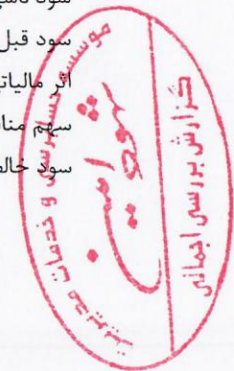 سود
سود قبل
اثر مالیاتی
سهم
سود خالص
موسسه حسابرسی و خدمات مدیریت
گزارش بررسی اجمالی